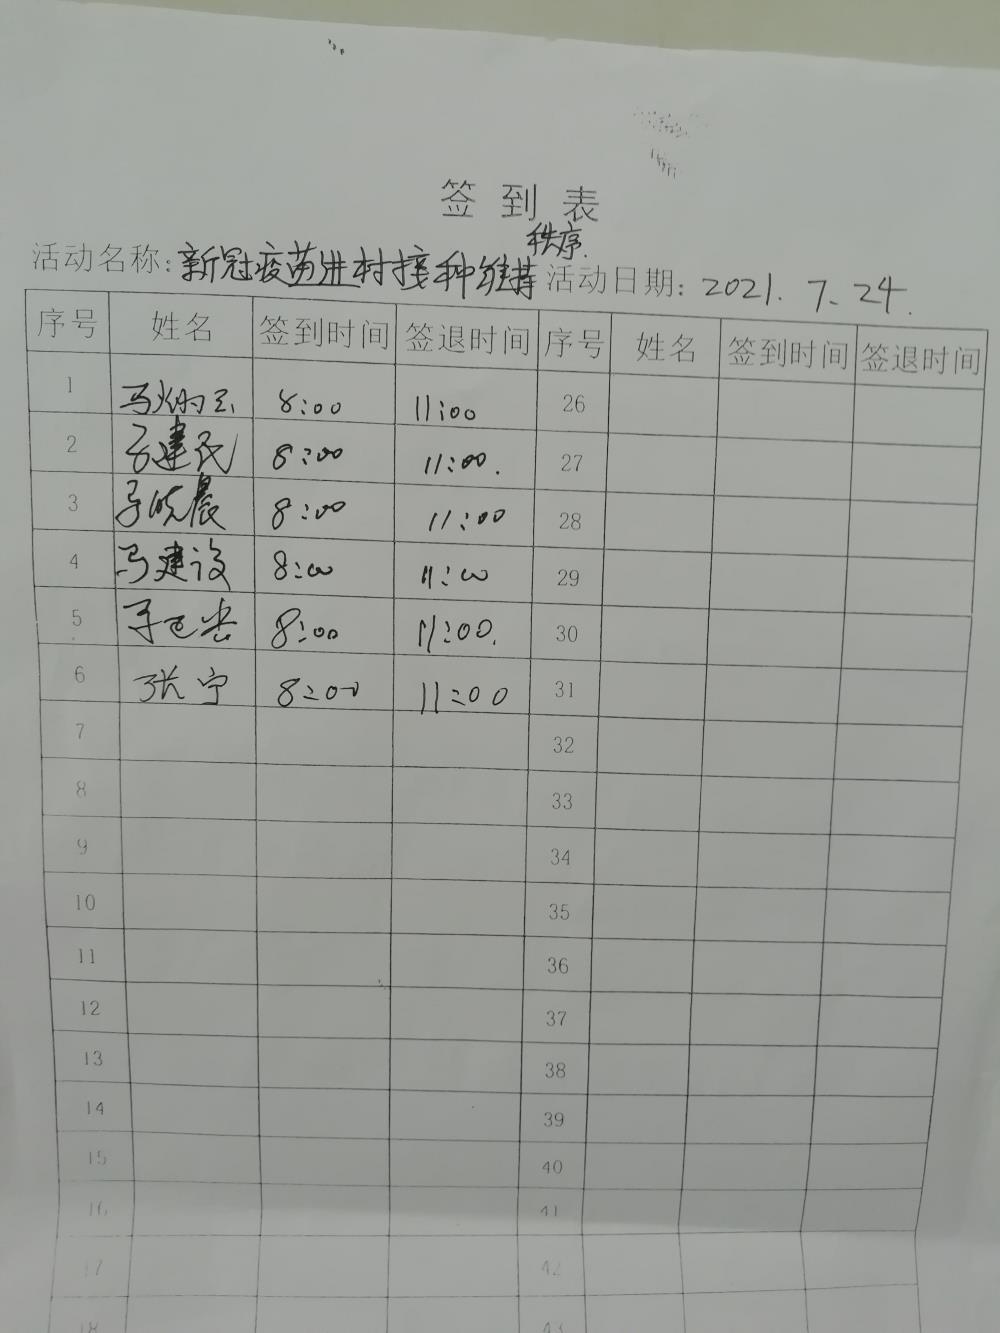 签到表
秩序
活动名称:新冠疫苗进村接种维持 活动日期:2021.7.24.
序号 姓名 签到时间 签退时间 序号 姓名 签到时间 签退时间
1 8:00 11:00 26
2 建民 8:00 11:00. 27
3 马晓晨 8:00 11:00 28
4 马建设 8:00 11:00 29
5 8:00 11:00. 30
6 张宁 8:00 11:00 31
7 32
8 33
9 34
10 35
11 36
12 37
13 38
14 39
15 40
16 41
17 42
18 43